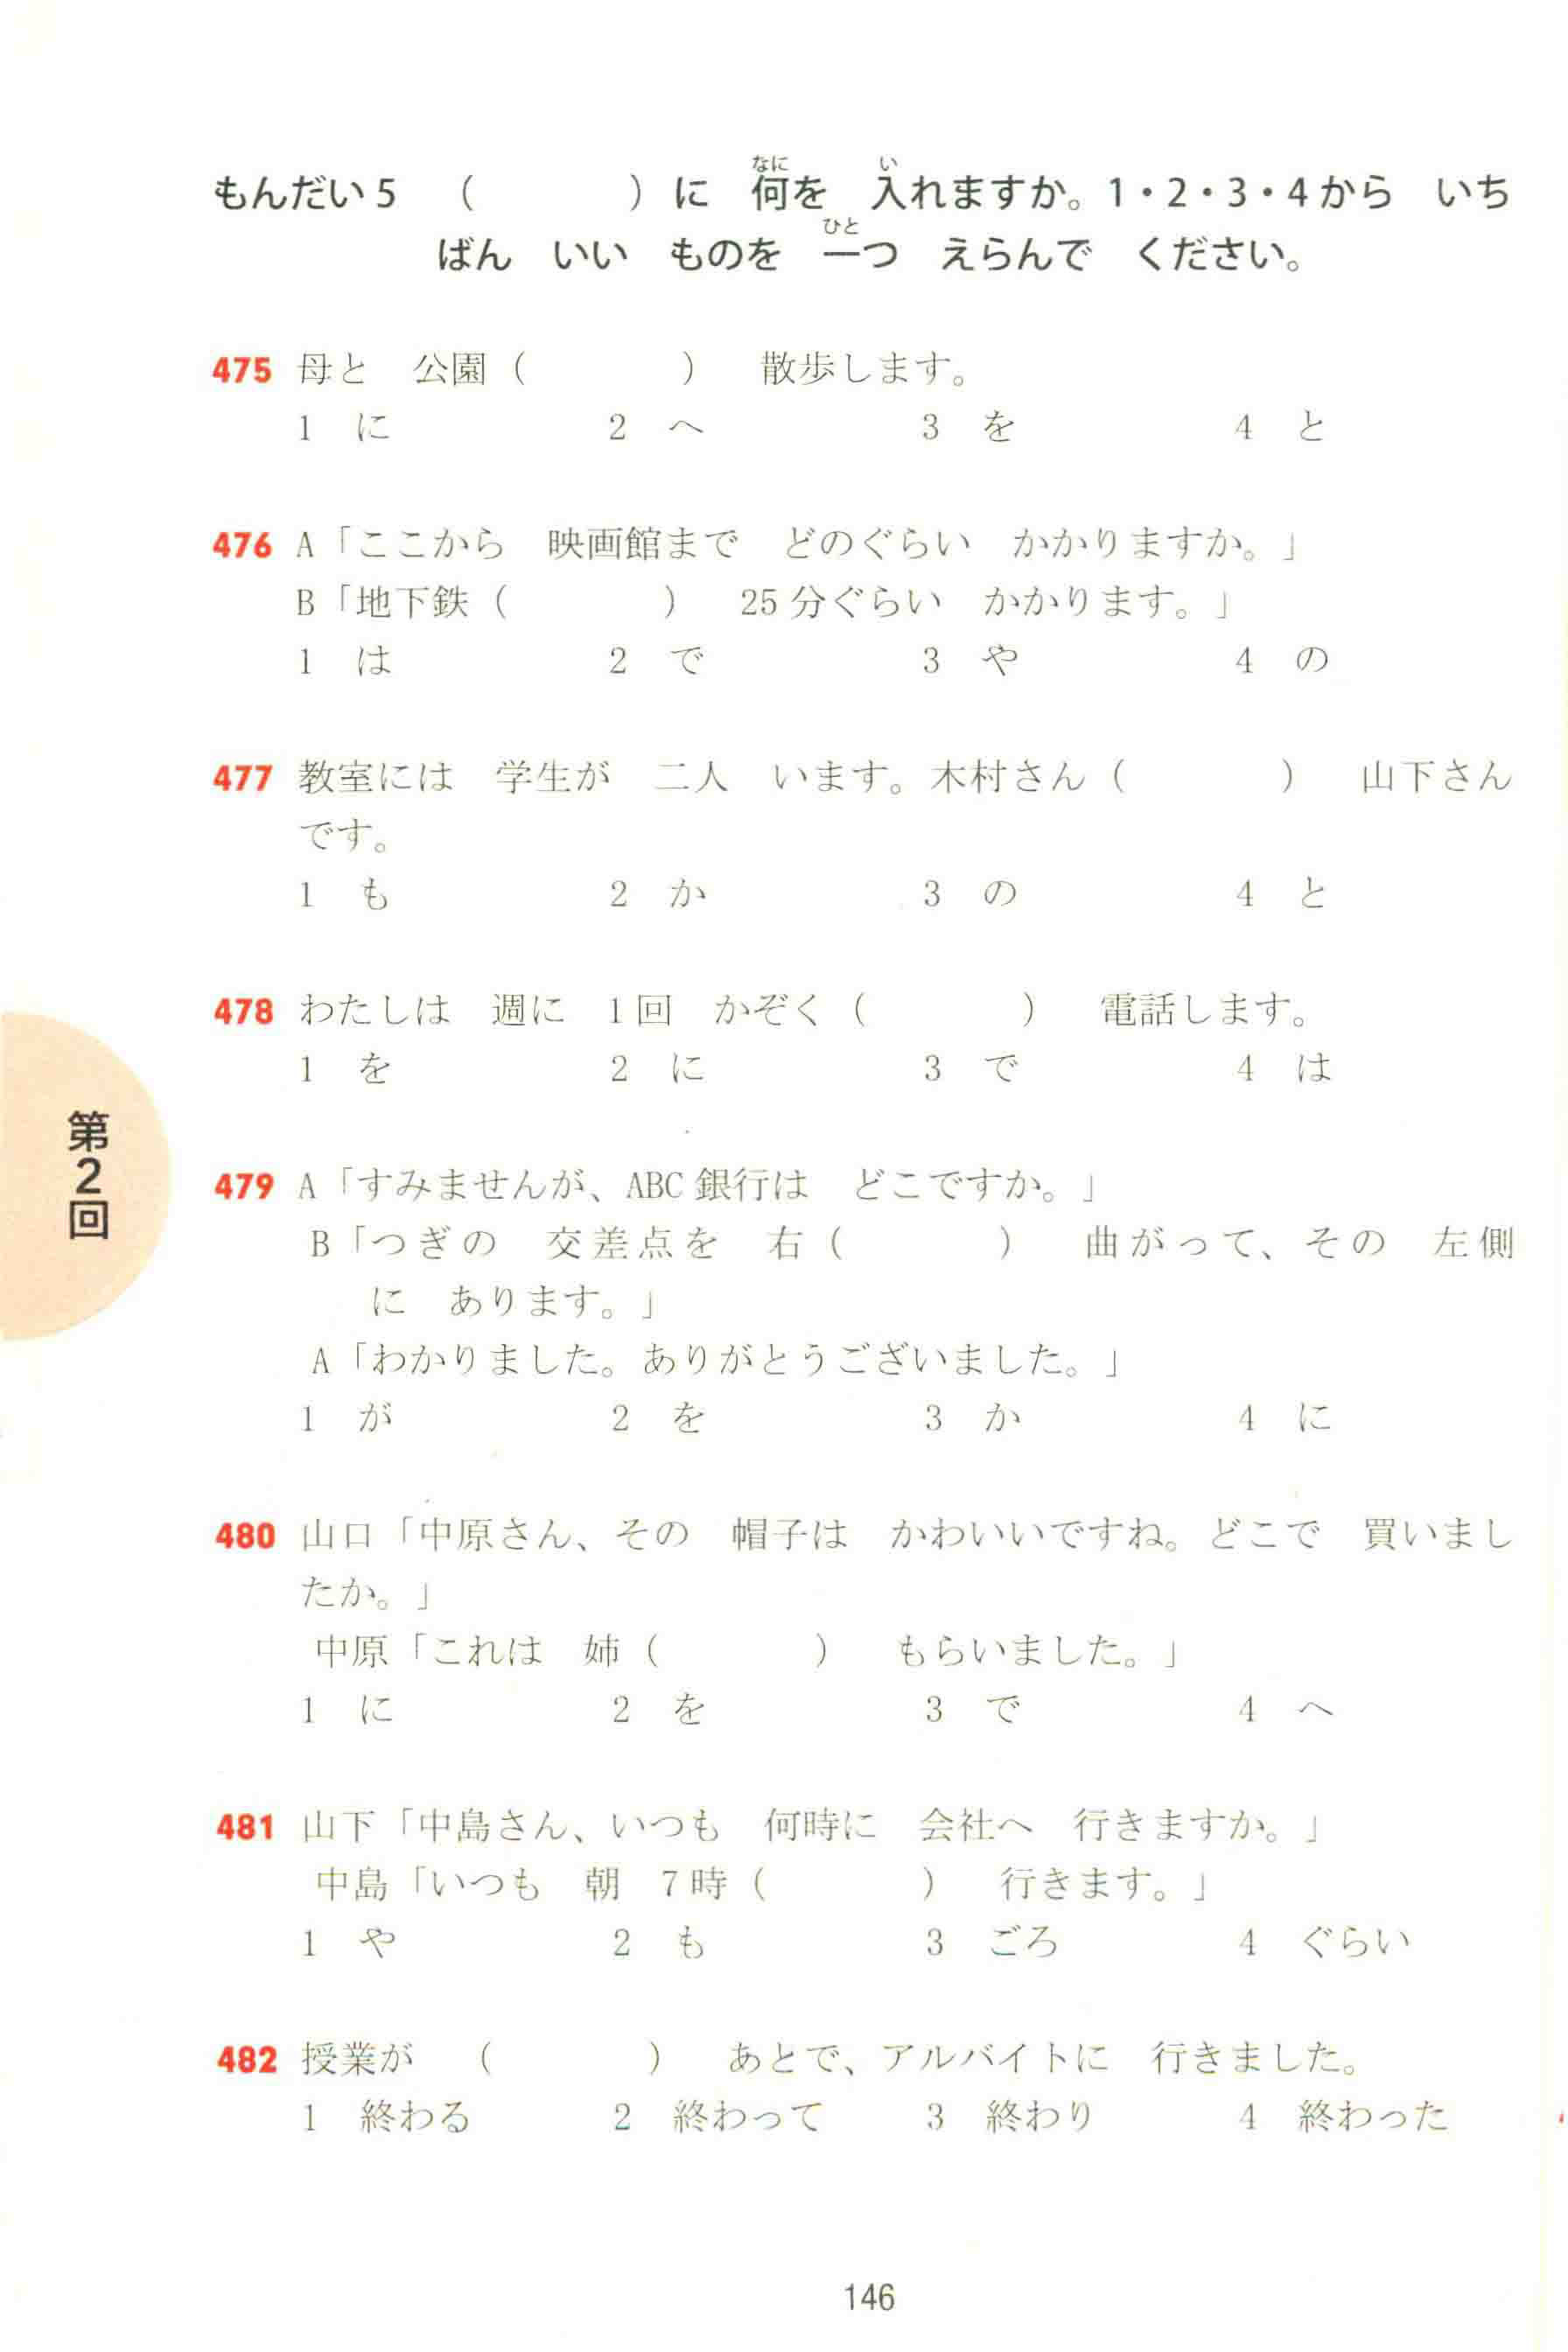 もんだい5　（　　　）に　何を　入れますか。1・2・3・4から　いち
ばん　いい　ものを　一つ　えらんで　ください。
475 母と　公園（　　　）　散歩します。
1　に　2　へ　3　を　4　と
476 A「ここから　映画館まで　どのぐらい　かかりますか。」
B「地下鉄（　　　）　25分ぐらい　かかります。」
1　は　2　で　3　や　4　の
477 教室には　学生が　二人　います。木村さん（　　　）　山下さん
です。
1　も　2　か　3　の　4　と
478 わたしは　週に　1回　かぞく（　　　）　電話します。
1　を　2　に　3　で　4　は
479 A「すみませんが、ABC銀行は　どこですか。」
B「つぎの　交差点を　右（　　　）　曲がって、その　左側
に　あります。」
A「わかりました。ありがとうございました。」
1　が　2　を　3　か　4　に
480 山口「中原さん、その　帽子は　かわいいですね。どこで　買いまし
たか。」
中原「これは　姉（　　　）　もらいました。」
1　に　2　を　3　で　4　へ
481 山下「中島さん、いつも　何時に　会社へ　行きますか。」
中島「いつも　朝　7時（　　　）　行きます。」
1　や　2　も　3　ごろ　4　ぐらい
482 授業が　（　　　）　あとで、アルバイトに　行きました。
1　終わる　2　終わって　3　終わり　4　終わった
第2回
146